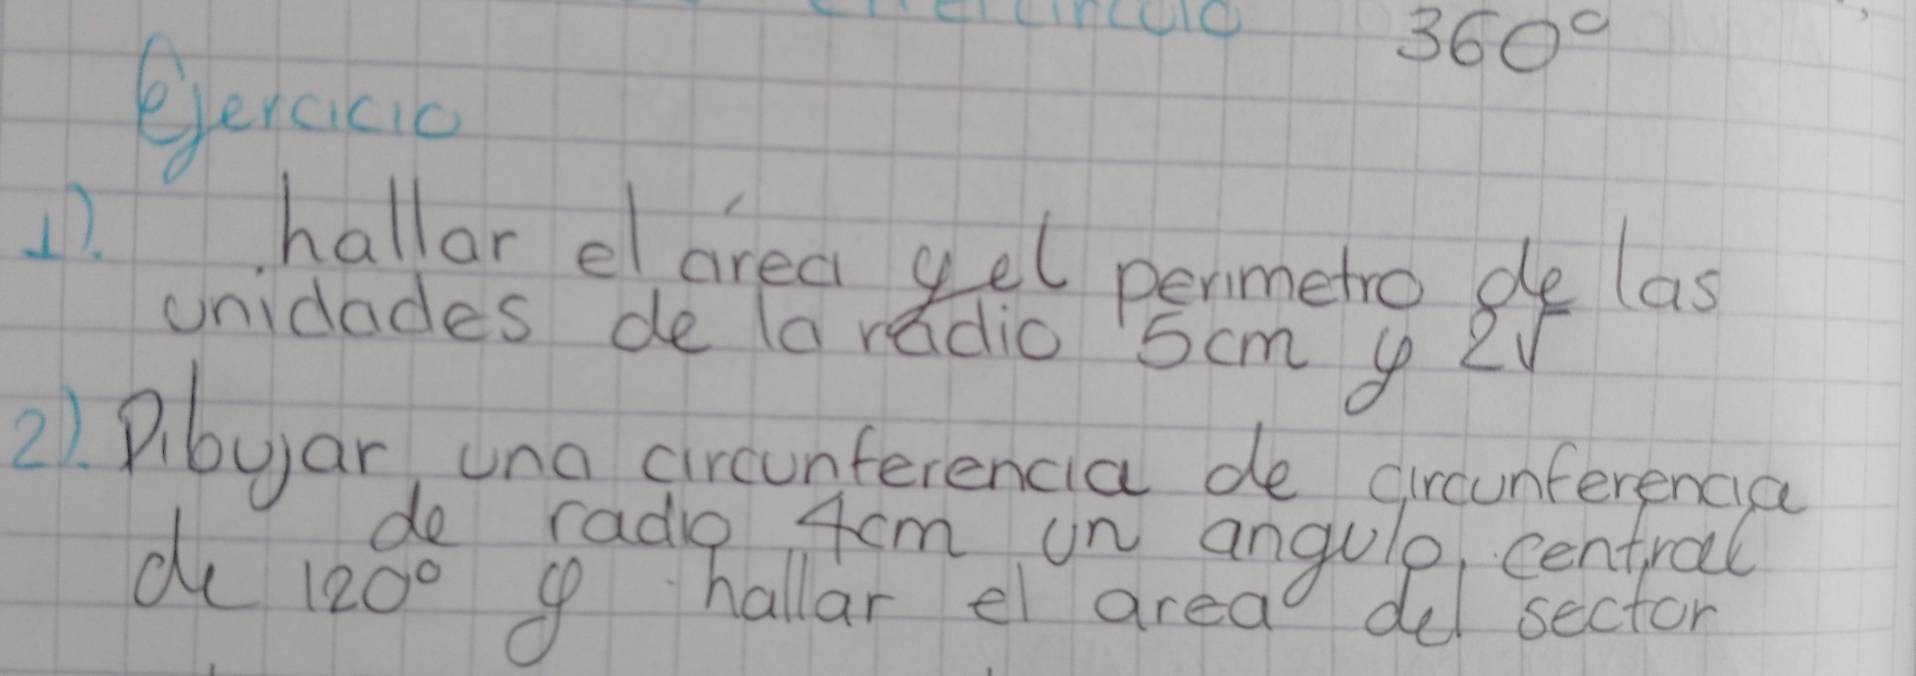 360°
Ejercicio
1). hallar el área y el perimetro de las
unidades de la radio 5cm y 2√
2). Dibujar una circunferencia de circunferencia
de radio 4cm un angulo central
de 120° y hallar el area del sector